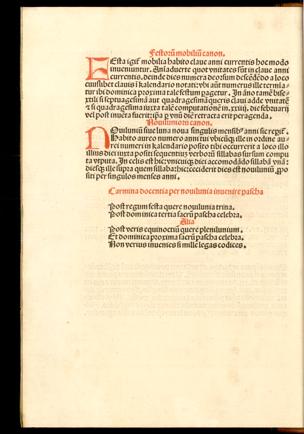 Festorũ mobiliũ canon.
FEsta igiṫ mobilia habito claue anni currentis hoc modo
inueniuntur. Aĩaduerte quot vnitates sũt in claue anni
currentis. deinde dies numera deorsum descẽdẽdo a loco
eiusdem clauis ĩ kalendario notati: vbi aũt numerus ille termĩa-
tur ibi dominica proxima tale festum pagetur. In ãno tamẽ bisse-
xtili si septuagesimã aut quadragesimã queris claui adde vnitatẽ
et si quadragesima iuxta talẽ computationẽ in. xxiiij. die februarij
vel post inuẽta fuerit: ipã p vnũ diẽ retracta erit peragenda.
Nouiluniorum canon.
NOuiluniũ siue luna noua ĩ singulis mensibus anni sic reqriṫ.
Habito aureo numero anni tui
rei numeri in kalendario posito tibi occurrerit a loco illo
illius diei iuxta positi sequentis verborũ sillabas sursum compu
ta vtputa. In celis est hic: vnicuique diei accomodãdo sillabã vnã:
dies illa supra quem sillaba hic ceciderit dies est nouilunij
siti per singulos menses anni.
Carmina docentia per nouilunia inuenire pascha
Post regum festa quere nouilunia trina.
Post dominica tertia sacrũ pascha celebra.
Alia
Post veris equinoctiũ quere plenilunium.
Et dominica proxima sacrũ pascha celebra.
Non verius inuenies si mille legas codices.